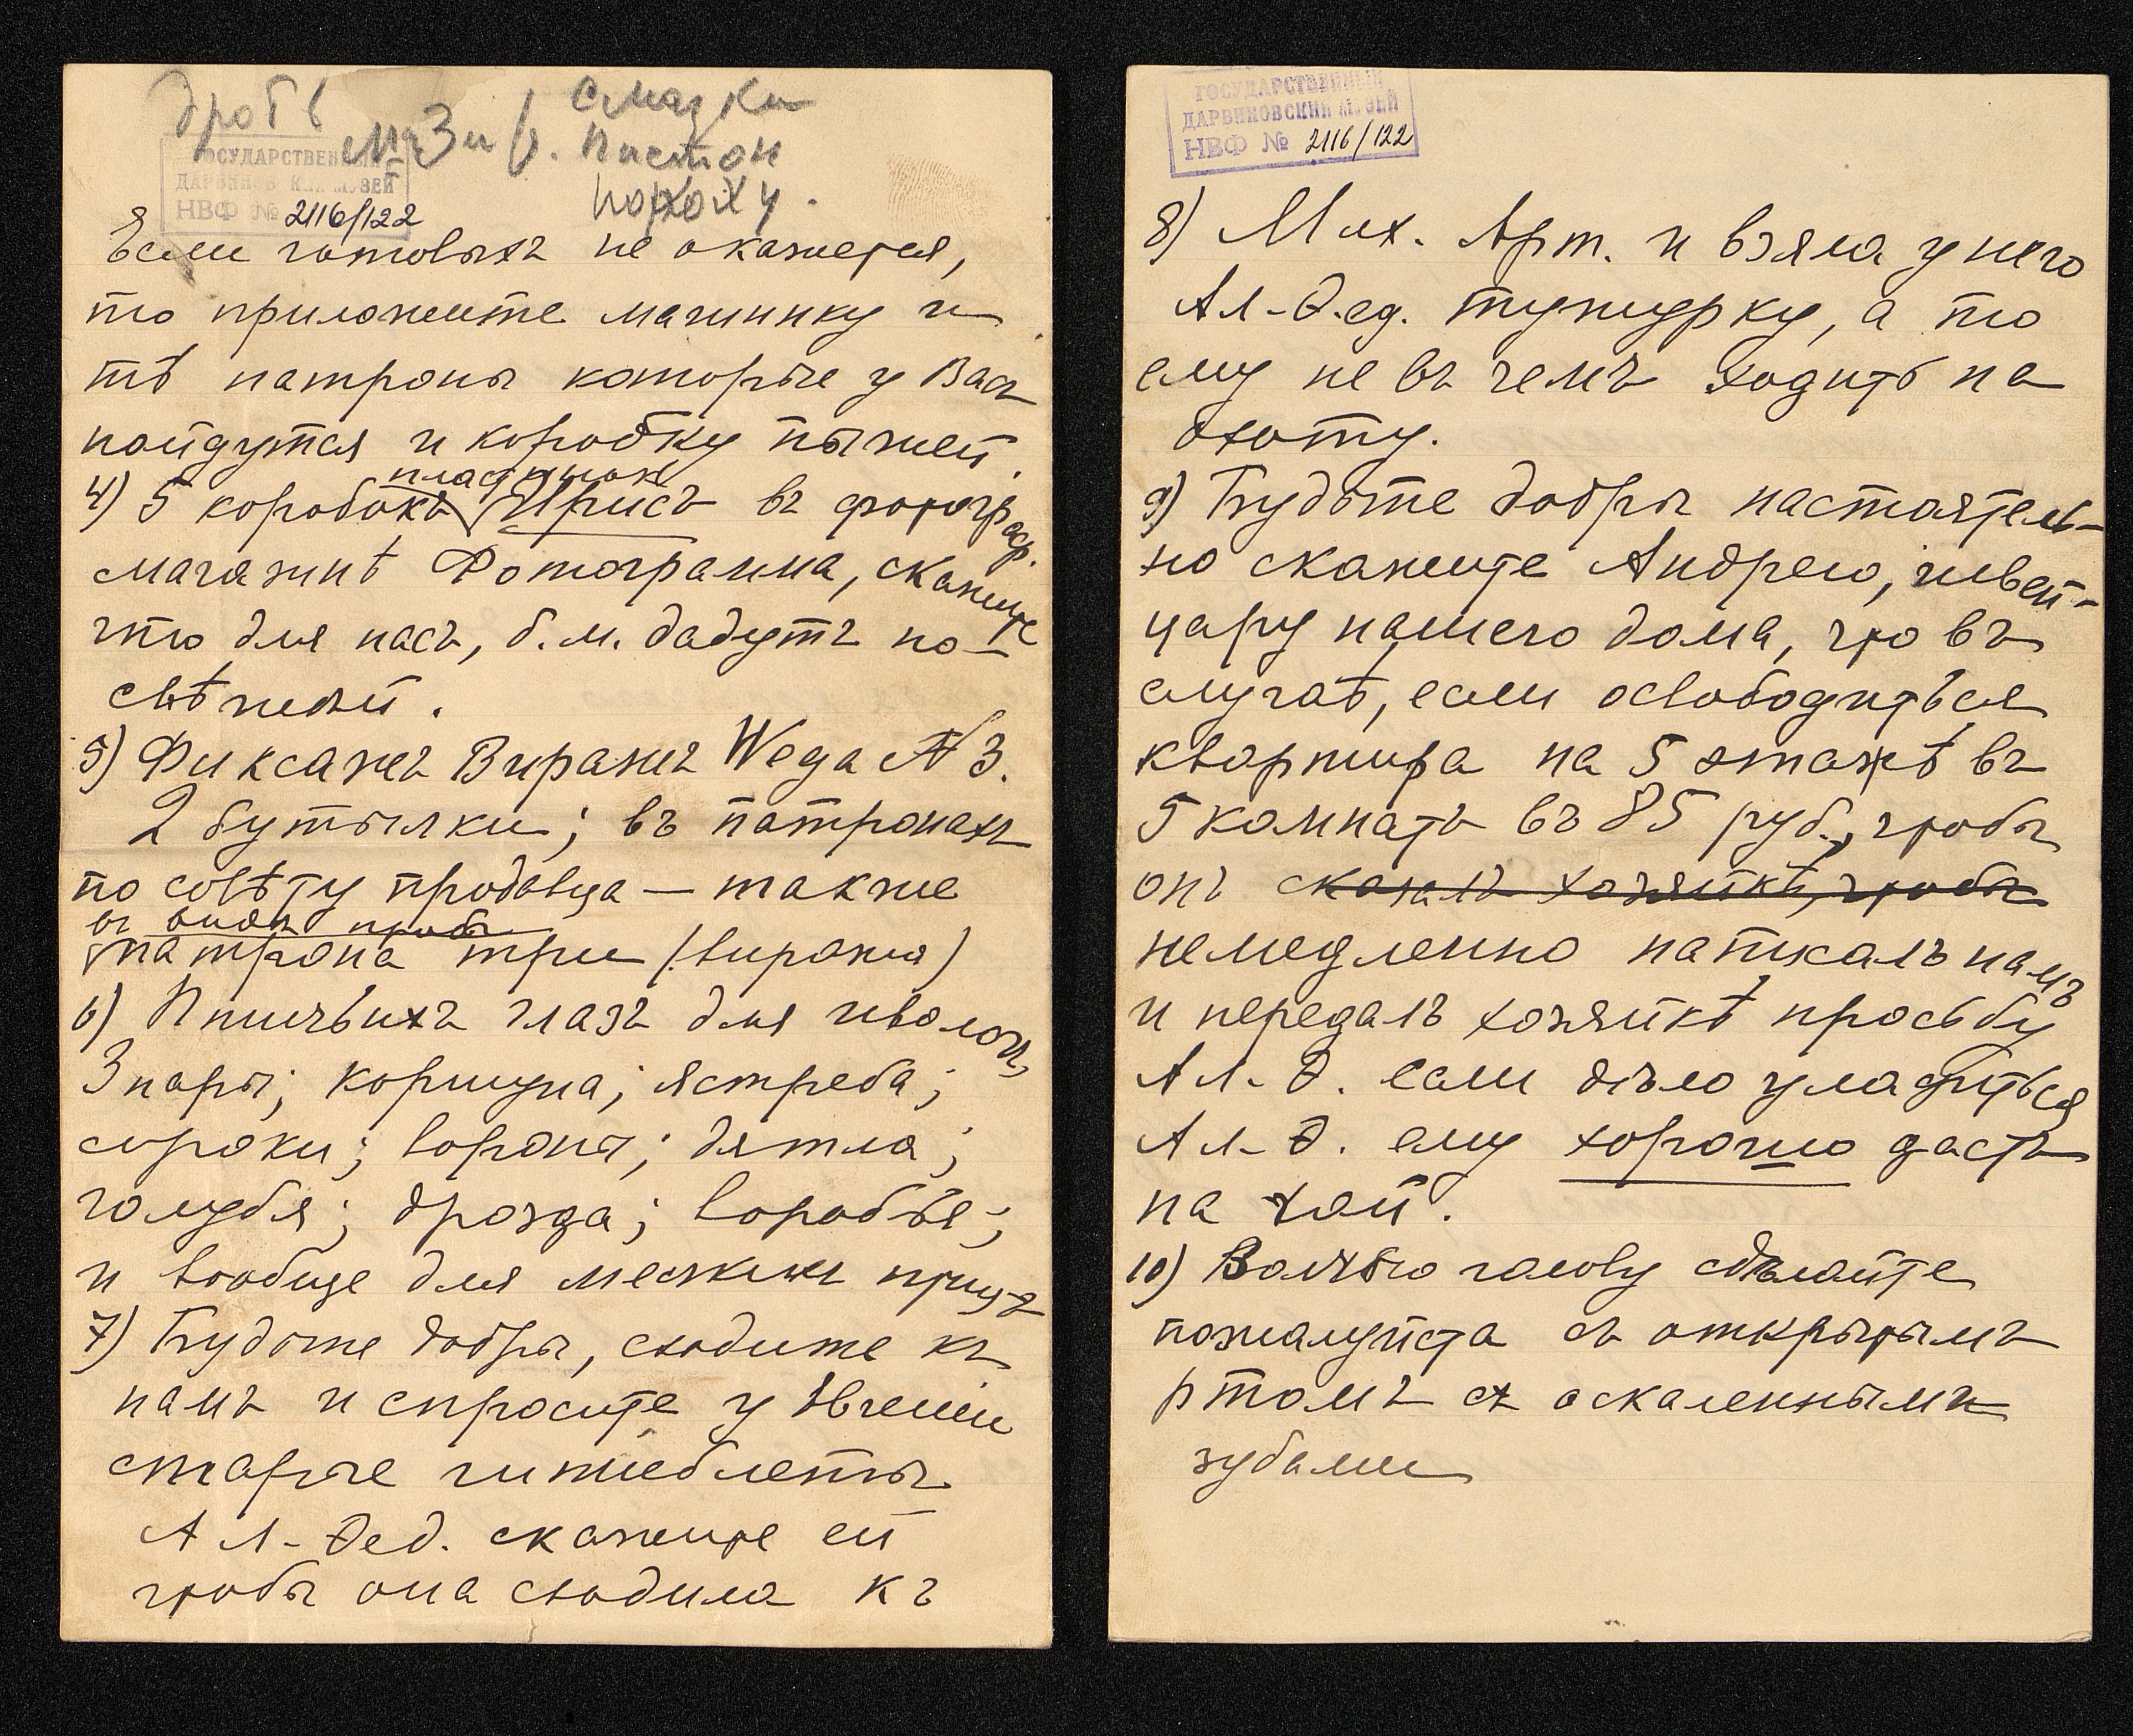 дробь
мази
смазки
пистон
пороху.
ГОСУДАРСТВЕННЫЙ
ДАРВИНОВСКИЙ МУЗЕЙ
НВФ № 2116/122
Если готовыхъ не окажется,
то приложите машинку и
тѣ патроны которые у Васъ
найдутся и коробку пыжей.
4) 5 коробокъ пластинок Ирисъ въ фотограф.
магазинѣ Фотограмма, скажите
что для насъ, б.м. дадутъ по-
свѣжей.
5) Фиксажъ Виражъ Wega № 3.
2 бутылки; въ патронахъ
по совѣту продавца — также
въ видѣ пробы
патрона три (виража)
6) Птичьихъ глазъ для иволги,
3 пары; коршуна; ястреба;
сороки; вороны; дятла;
голубя; дрозда; воробья;
и вообще для мелкихъ птицъ
7) Будьте добры, сходите къ
намъ и спросите у Евгеніи
старые штиблеты
Ал-Ѳед. скажите ей
чтобы она сходила къ
ГОСУДАРСТВЕННЫЙ
ДАРВИНОВСКИЙ МУЗЕЙ
НВФ № 2116/122
8) Мих. Арт. и взяла у него
Ал-Ѳ.ед. тужурку, а то
ему не въ чемъ ходить на
охоту.
9) Будьте добры настоятель-
но скажите Андрею, швей-
цару нашего дома, что въ
случаѣ, если освободиться
квартира на 5 этажѣ въ
5 комнатъ въ 85 руб., чтобы
онъ сказалъ хозяйкѣ, чтобы
немедленно написалъ намъ
и передалъ хозяйкѣ просьбу
Ал-Ѳ. если дѣло уладиться
Ал-Ѳ. ему хорошо дастъ
на чай.
10) Волчью голову сдѣлайте
пожалуйста съ открытымъ
ртомъ съ оскаленными
зубами